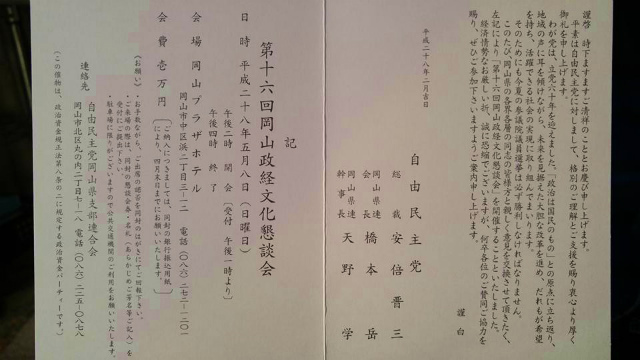 謹啓 時下ますますご清祥のこととお慶び申し上げます。
平素は自由民主党に対しまして、格別のご理解とご支援を賜り衷心より厚く
御礼を申し上げます。
わが党は、立党六十年を迎えました。「政治は国民のもの」との原点に立ち返り、
地域の声に耳を傾けながら、未来を見据えた大胆な改革を進め、だれもが希望
を持ち、活躍できる社会の実現に取り組んでまいります。
そのためにも今夏の参議院議員選挙は必ず勝利しなければなりません。
このたび、岡山県の各界各層の同志の皆様方と親しく意見を交換させて頂きたく、
左記により「第十六回岡山政経文化懇談会」を開催することといたしました。
経済情勢なお厳しい折、誠に恐縮でございますが、何卒各位のご賛同ご協力を
賜り、ぜひご参加下さいますようご案内申し上げます。
謹白
平成二十八年二月吉日
自由民主党
総裁 安倍晋三
岡山県連会長 橋本岳
岡山県連幹事長 天野学
記
第十六回岡山政経文化懇談会
日時 平成二十八年五月八日(日曜日)
午後二時 開会〔受付 午後一時より〕
午後四時 終了
会場 岡山プラザホテル
岡山市中区浜二丁目三ー一二 電話(〇八六)二七二ー一二〇一
会費 壱万円
〔ご納入につきましては、同封の銀行振込用紙により、四月末日までにお願いいたします。〕
《お願い》
・お手数ながら、ご出席の諾否を同封のはがきにてご回報下さい。
・ご来場の際は、同封の懇談会券を名札(あらかじめご芳名等ご記入)を
受付にご提出下さい。
・駐車場に限りがございますので公共交通機関のご利用をお願いいたします。
連絡先
自由民主党岡山県支部連合会
岡山市北区丸の内二丁目七ー一八 電話(〇八六)二二五ー〇八七八
(この催物は、政治資金規正法第八条の二に規定する政治資金パーティーです。)